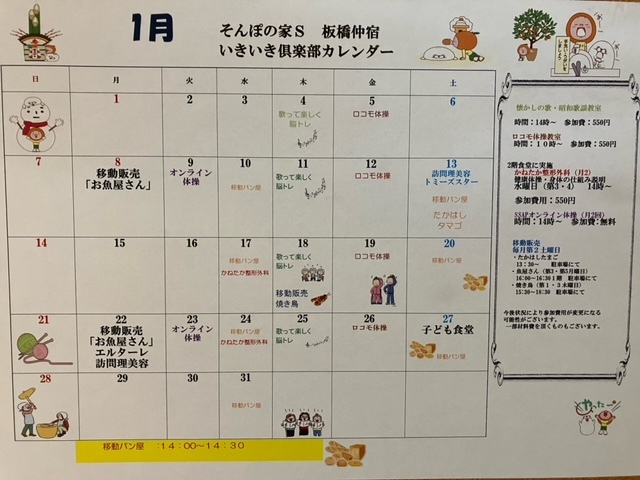 1月
そんぽの家S 板橋仲宿
いきいき倶楽部カレンダー
日 月 火 水 木 金 土
1 2 3 4 5 6
歌って楽しく
脳トレ
ロコモ体操
7 8 9 10 11 12 13
移動販売
「お魚屋さん」
オンライン
体操
移動パン屋
歌って楽しく
脳トレ
ロコモ体操
訪問理美容
トミーズスター
移動パン屋
たかはし
タマゴ
14 15 16 17 18 19 20
移動パン屋
かねたか整形外科
歌って楽しく
脳トレ
移動販売
焼き鳥
ロコモ体操
移動パン屋
21 22 23 24 25 26 27
移動販売
「お魚屋さん」
エルターレ
訪問理美容
オンライン
体操
移動パン屋
かねたか整形外科
歌って楽しく
脳トレ
ロコモ体操
子ども食堂
移動パン屋
28 29 30 31
移動パン屋
移動パン屋 :14:00~14:30
懐かしの歌・昭和歌謡教室
時間:14時~ 参加費:550円
ロコモ体操教室
時間:10時~ 参加費:550円
2階食堂に実施
かねたか整形外科(月2)
健康体操・身体の仕組み説明
水曜日(第3・4) 14時~
参加費用:550円
SSAPオンライン体操(月2回)
時間:14時~ 参加費:無料
移動販売
毎月第2土曜日
・たかはしたまご
13:30~ 駐車場にて
・魚屋さん(第3・第5月曜日)
16:00~16:30 1階 駐車場にて
・焼き鳥(第1・3木曜日)
15:30~18:30 駐車場にて
今後状況により参加費用が変更になる
可能性がございます。
一部材料費を頂くものもございます。